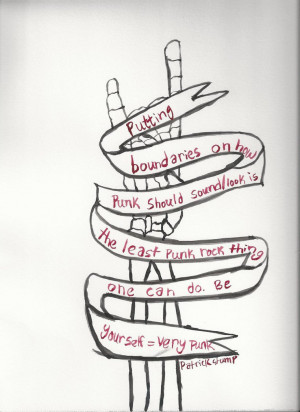 Putting
boundaries on how
Punk should sound/look is
the least Punk rock thing
one can do. Be
yourself = very Punk
Patrick stump